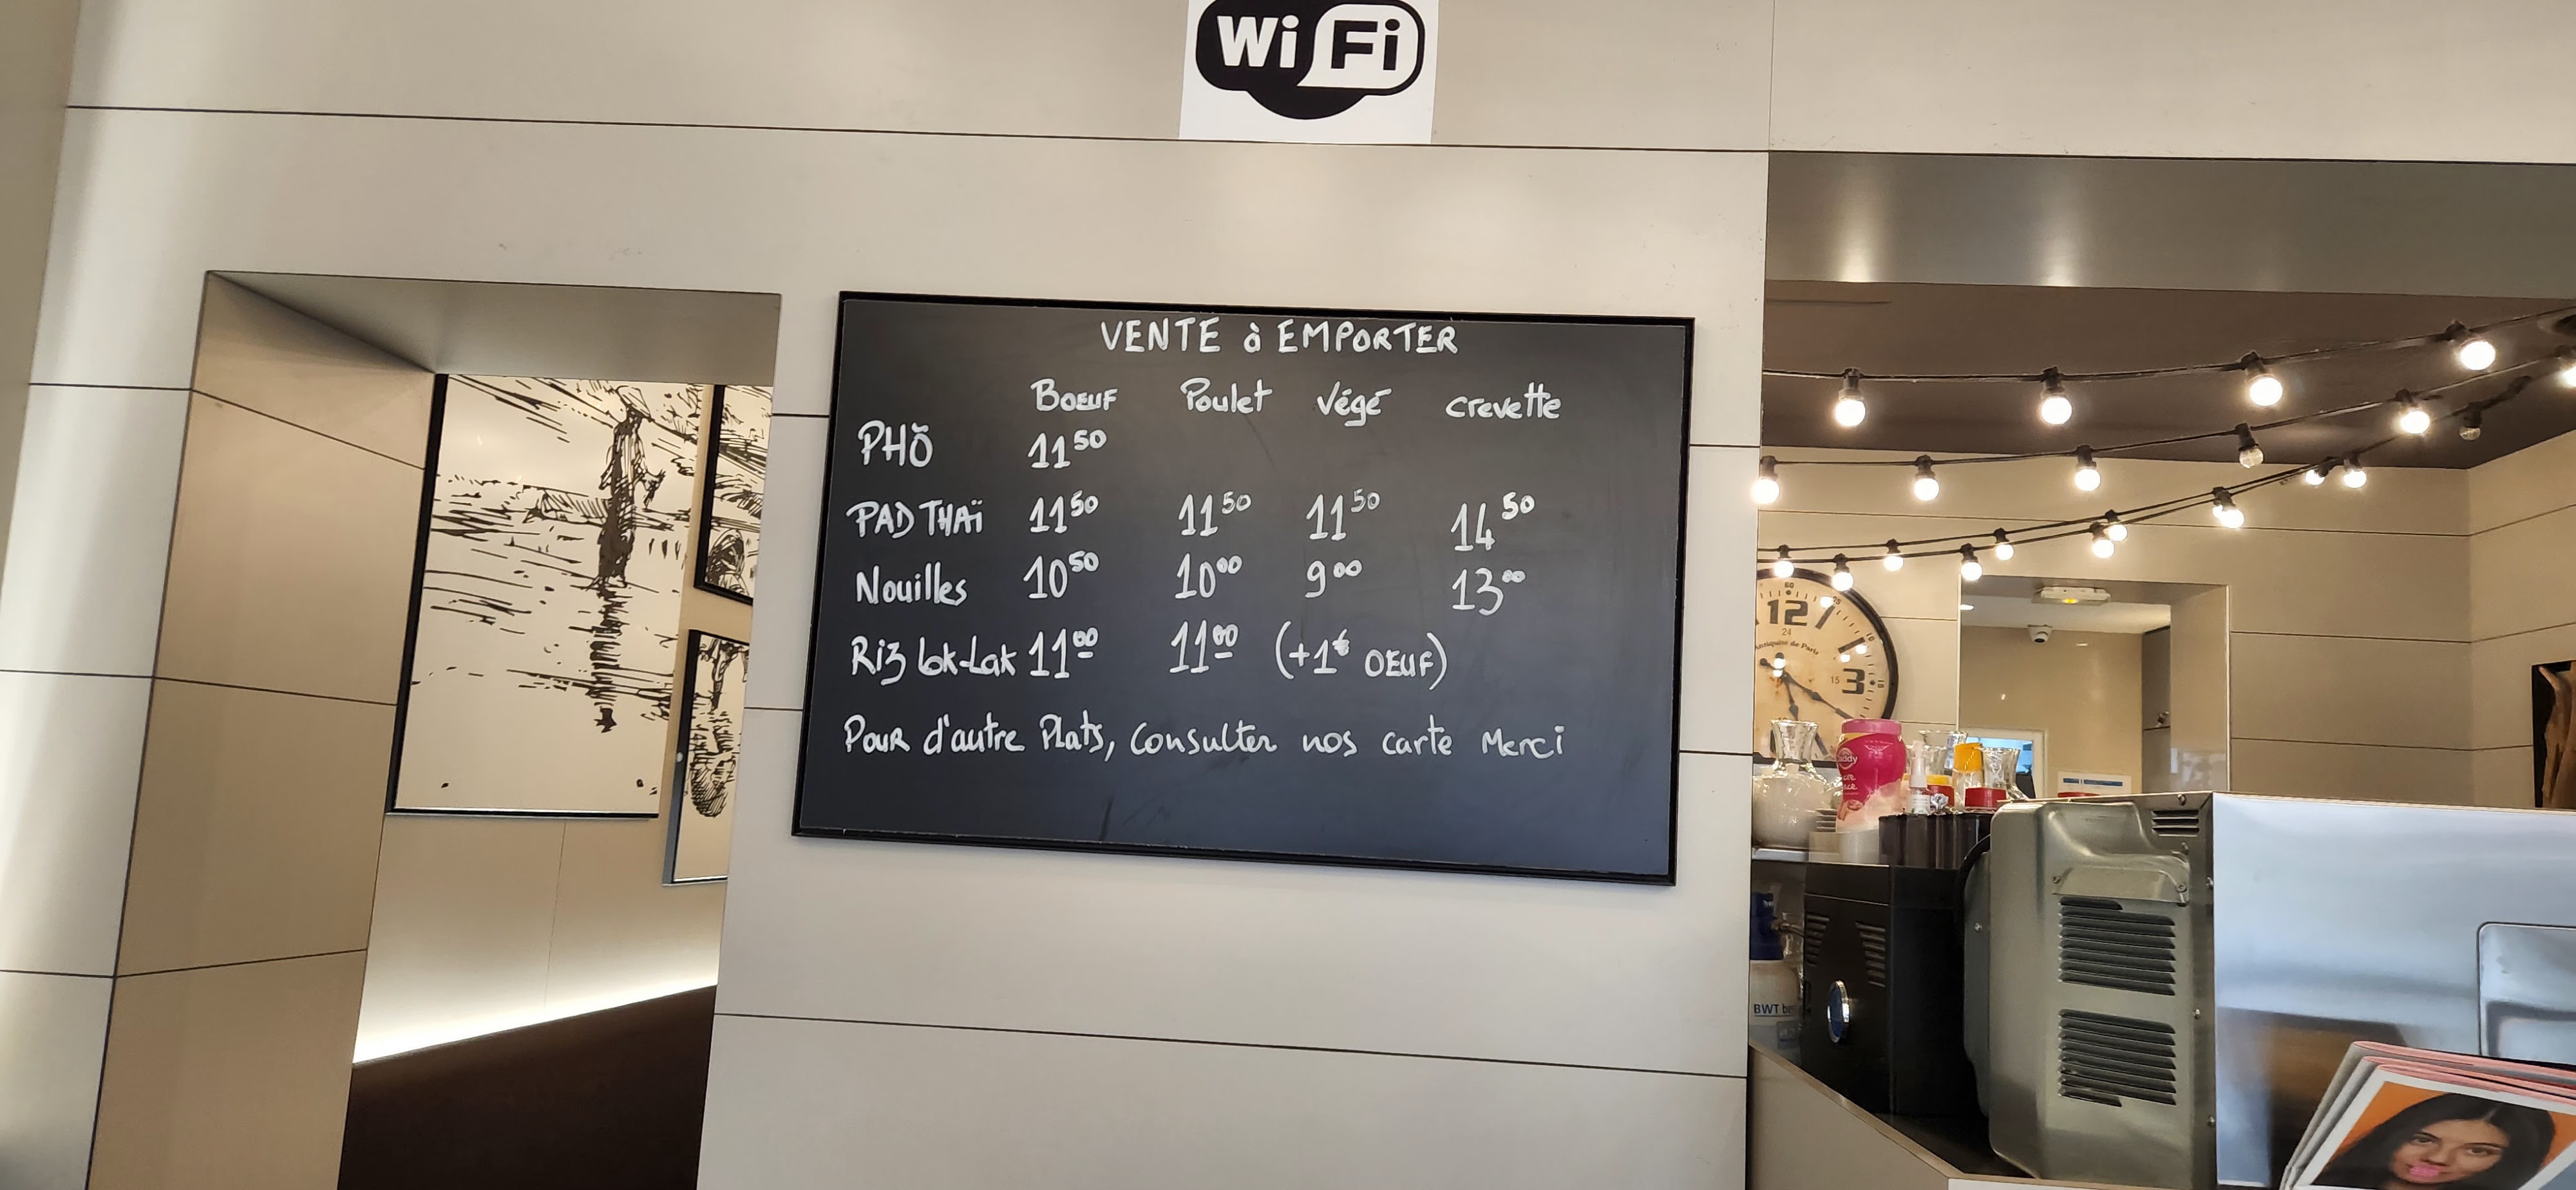 WiFi
VENTE à EMPORTER
BOEUF Poulet Végé crevette
PHỞ 11⁵⁰
PAD THAÏ 11⁵⁰ 11⁵⁰ 11⁵⁰ 14⁵⁰
Nouilles 10⁵⁰ 10⁰⁰ 9⁰⁰ 13⁰⁰
Riz Lok-Lak 11⁰⁰ 11⁰⁰ (+1€ OEUF)
Pour d'autre Plats, Consulter nos carte Merci
60
12
24
Antiquité de Paris
15 3
BWT